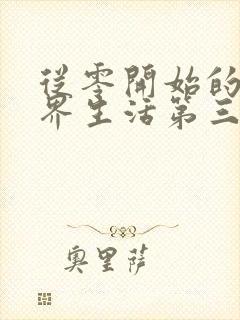 從零開始的
界生活第三
奧里薩